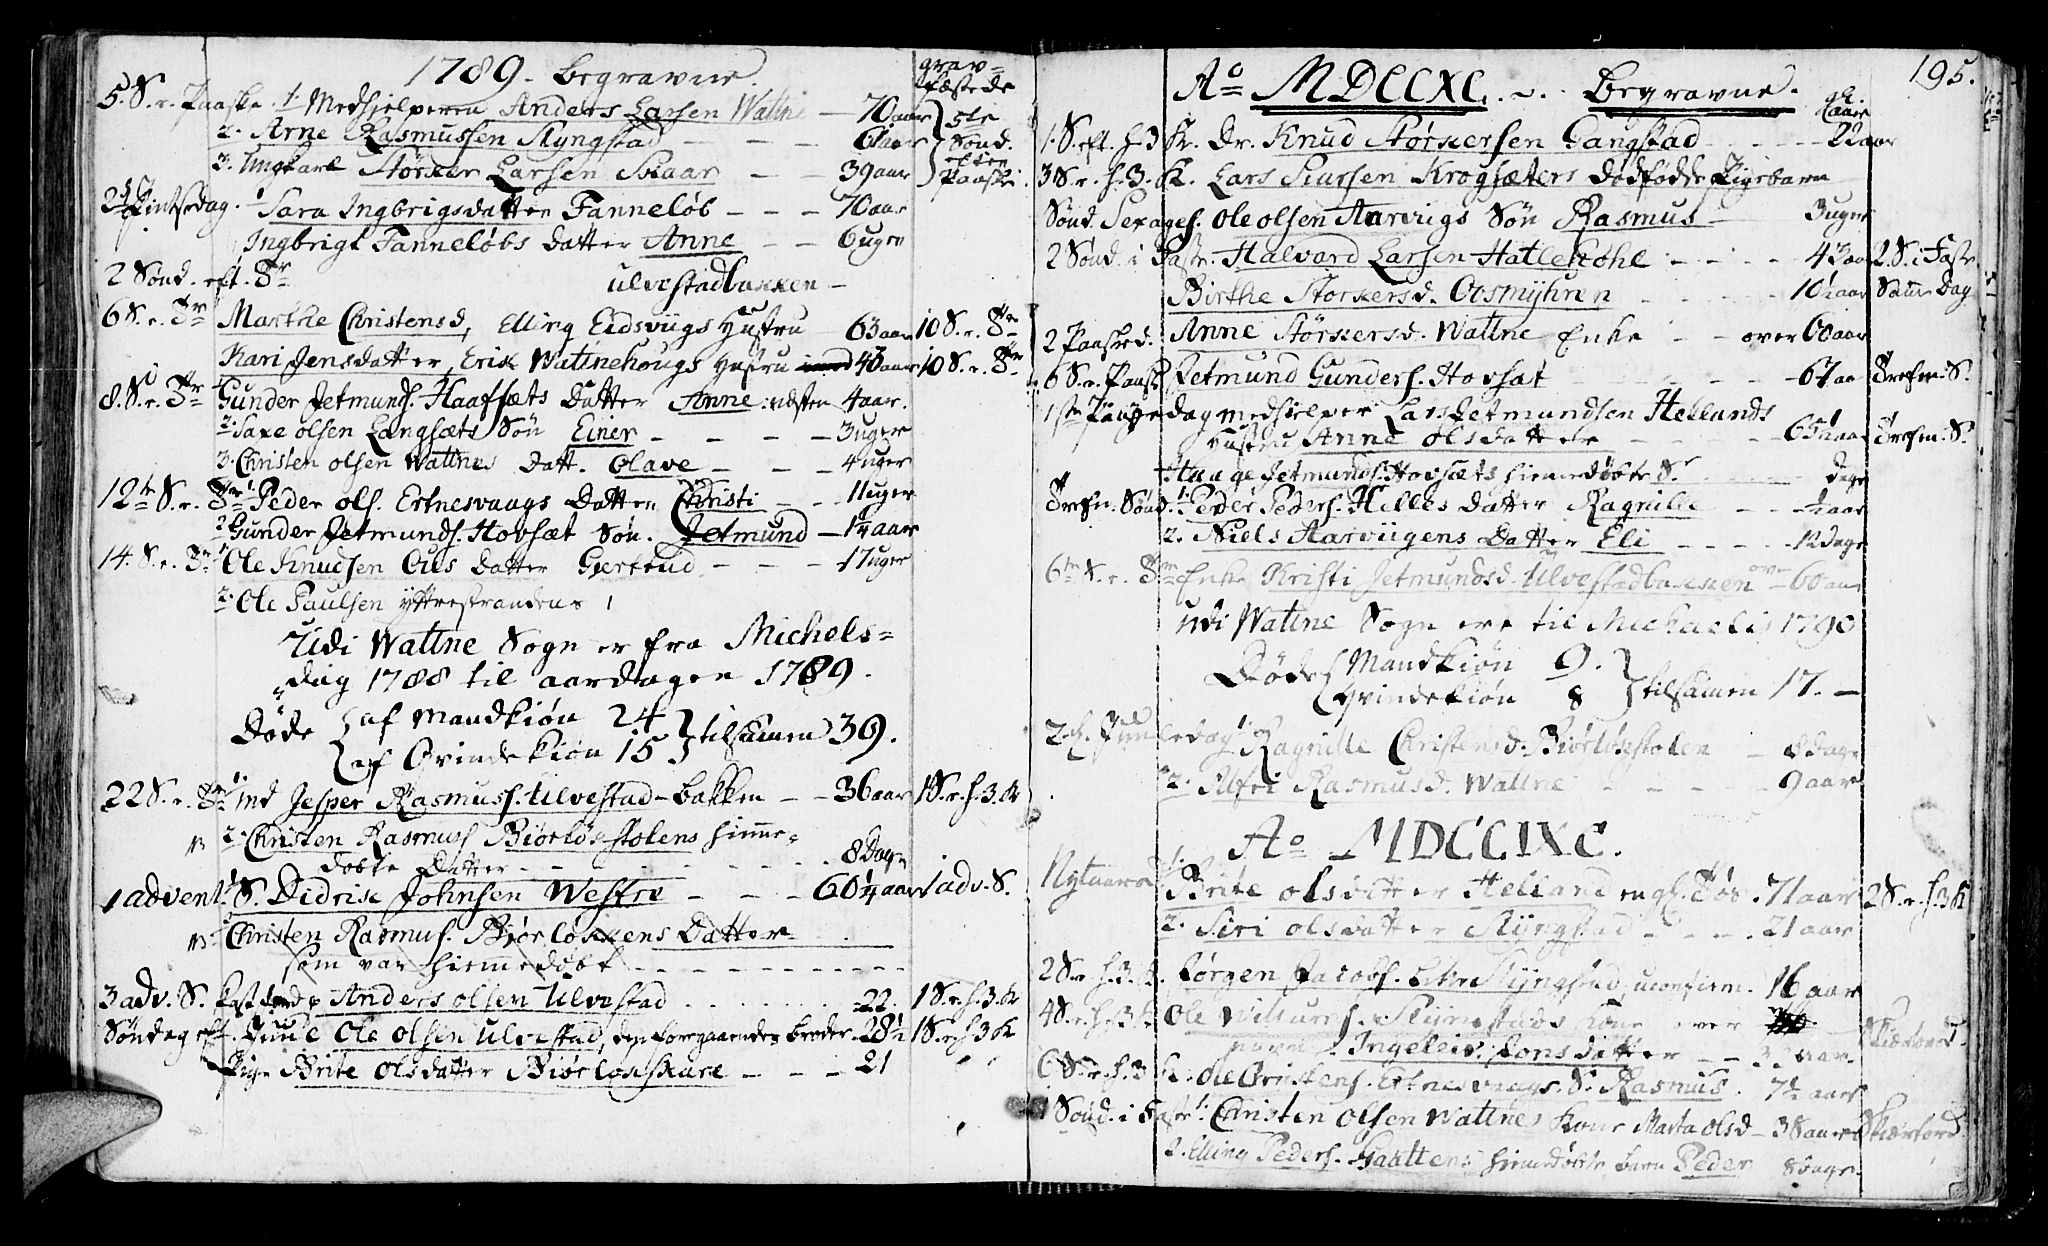 1789. Begravne.
grav=
fæstede
5. S. e. Paaske. 1. Medhjelperen Anders Larsen Watne — 70 aar
5te
2. Arne Rasmussen Slyngstad — — — 61 aar
Sønd.
3. Ungkarl Størker Larsen Skaar — — 39 aar
efter Paaske
2d. Pintsedag. Sara Ingbrigsdatter Fanneløb — — — 70 aar
Ingbrigt Fanneløbs datter Anne — — 6 uger
2 Sønd. eft. Tr. Ulvestadbakken —
6 S. e. Tr. Marthe Christensd, Elling Eidsviigs Hustru 63 aar 10 S. e. Tr.
Kari Jensdatter, Erik Watnehougs Hustru 40 aar 10 S. e. Tr.
8. S. e. Tr. Gunder Jetmunds. Haafsæts Datter Anne næsten 4 aar.
2. Saxe Olsen Langsæts Søn Einer — — — 3 uger
3. Christen Olsen Watnes Datt. Olave — — — 4 uger
12te S. e. Tr. 1. Peder Ols. Ertnesvaags Datter Christi — — 11 uger
2 Gunder Jetmunds. Hovsæt Søn. Jetmund — 1¼ aar
14. S. e. Tr. Ole Knudsen Aus datter Giertrud — — — 17 uger
2. Ole Paulsen Yttrestrandens 1
Udi Watne Sogn er fra Michels=
dag 1788 til aardagen 1789.
Døde { af Mandkiøn 24 } tilsamen 39.
af Qvindekiøn 15
22 S. e. Tr. 1. Jesper Rasmuss. Ulvestad-bakken — — 36 aar 1 S. e. h. 3. K
2. Christen Rasmuss Biørløs-stolens hieme=
døbte Datter — — — 8 Dage
1 Advent. S. Didrik Johnsen Westre — — — 60¼ aar 1 adv. S.
Christen Rasmus. Biørløkkens Datter
som var hiemedøbt — — —
3 adv. S. Anders Olsen Ulvestad 22. 1 S. e. h. 3. K
Søndag eft. Juul Ole Olsen Ulvestad, den foregaaendes broder 28½ 1 S. e. h. 3 K
Pige Brite Olsdatter Biørløsskare — — — 21
Ao MDCCXC. Begravne.
195.
1. S. eft. h. 3 K. Dr. Knud Størkersen Gangstad — — 22 aar
3 S. e. h. 3. K. Lars Siursen Krogsæters Dødfødde Pigebarn
Sønd. Sexages. Ole Olsen Aarviigs Søn Rasmus — 3 uger
2 Sønd. i Faste. Halvard Larsen Hatlehohl — — 43 aar 2. S. i Faste.
Birthe Størkersd. Oosmyhren — — 10½ aar Same Dag
2 Paasked. Anne Størkersd. Watne Enke — — over 60 aar
6 S. e. Paask. Jetmund Gunders. Hovsæt — — 67 aar Trefn. S.
1ste Pintzedag Medhielper Lars Jetmundsen Hellands
Hustru Anne Olsdatter — — 65½ aar Trefn. S.
Jetmunds. Hovsæts hiemedøbte S. — — dage
Trefn. Sønd. 1. Peder Peders. Helles datter Ragnille — — ½ aar
2. Niels Harviigens Datter Eli — — 12 dage
6te S. e. Tr. Enke Kristi Jetmundsd. Ulvestadbakken over 60 aar
Udi Watne Sogn ere til Michaelis 1790
Døde { Mandkiøn 9. } tilsamen 17. —
Qvindekiøn 8
2d. Juledag 1. Ragnille Christensd. Biørløkstolen — 8 dage
2. Alfri Rasmusd. Watne — — 9 aar
Ao MDCCIXC.
Nytaarsd. 1. Brite Olsdatter Helland 71 aar 2 S. e. h. 3 K
2. Siri Olsdatter Slyngstad — — 21 aar
2 S. e. h. 3. K. Jørgen Jacobs. Slyngstad, uconfirm. 16 aar
4 S. e. h. 3. K Ole Slyngstads Kone over
navn Ingeleiv Jonsdatter — — aar Skiærtorsd.
6 S. e. h. 3 K. Ole Christens. Ertnesvaags S. Rasmus. 7½ aar
1 Sønd. i Faste 1. Christen Olsen Watnes Kone Marta Olsd — 38 aar Skiærtorsd.
2. Elling Peders. Gaattens hiemedøbte barn Peder 8 dage.